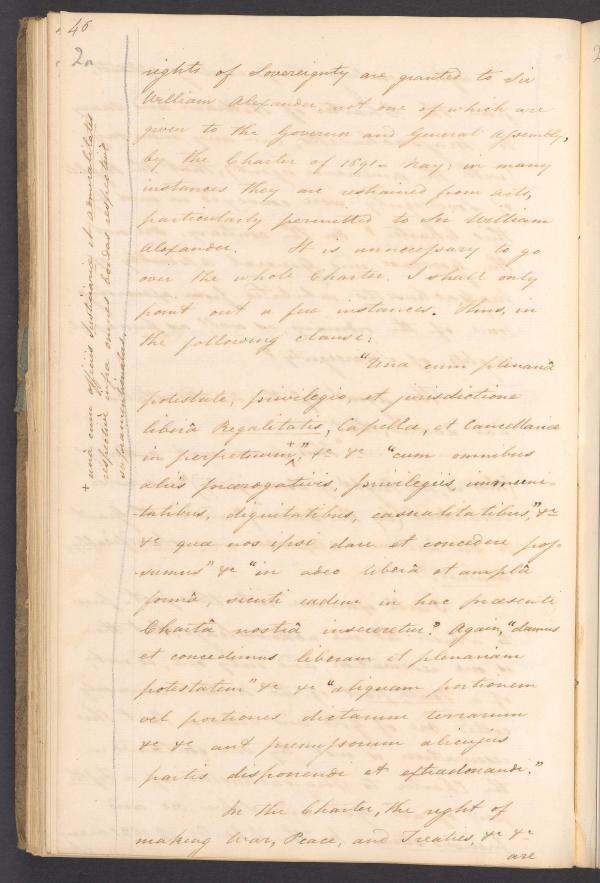 46
2n
rights of Sovereignty are granted to Sir
William Alexander, not one of which are
given to the Governor and General Assembly,
by the Charter of 1691 - Nay; in many
instances they are restrained from acts,
particularly permitted to Sir William
Alexander. It is unnecessary to go
over the whole Charter. I shall only
point out a few instances. Thus, in
the following clause:
"Una cum plenariâ
potestate, privilegio, et jurisdictione
liberâ Regalitatis, Capellæ, et Cancellariæ
in perpetuum,+" &c &c "cum omnibus
aliis prærogativis, privilegiis, immuni-
-tatibus, dignitatibus, casualitatibus," &c
&c quæ nos ipsi dare et concedere pos-
-sumus" &c "in adeo liberâ et amplâ
formâ, sicuti eadem in hac præsenti
Chartâ nostrâ insereretur." Again, "damus
et concedimus liberam et plenariam
potestatem" &c &c "aliquam portionem
vel portiones dictarum terrarum
&c &c aut premissorum alicujus
partis disponendi et extradonandi."
In the Charter, the right of
making War, Peace, and Treaties, &c &c
are
+ unà cum officiis Justitiariæ et admiralitatis
respectivè infra omnes bondas respectivè